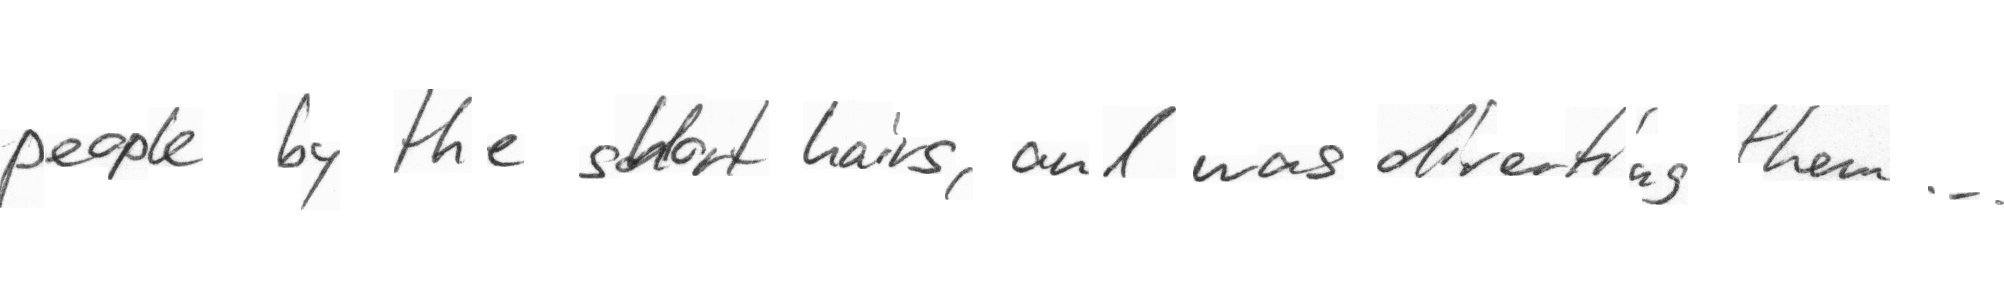 people by the short hairs, and was directing them ...